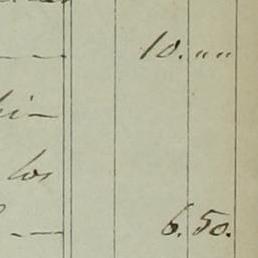 10. ""
hi-
los
6. 50.